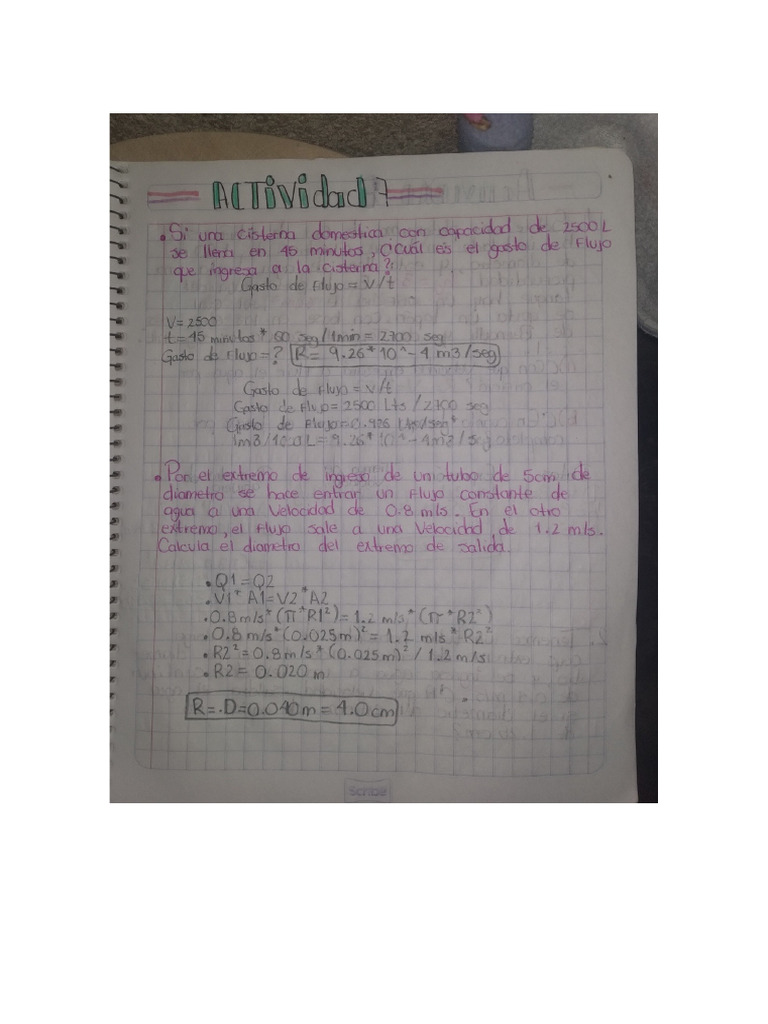 ACTIVIdad 7
• Si una cisterna domestica con capacidad de 2500 L
se llena en 45 minutos, ¿Cuál es el gasto de Flujo
que ingresa a la cisterna?
Gasto de Flujo = V/t
V=2500
t=45 minutos * 60 seg/1min = 2700 seg
Gasto de Flujo=? R= 9.26*10^-4 m3/seg
Gasto de Flujo = V/t
Gasto de Flujo=2500 Lts/2700 seg
Gasto de Flujo=0.926 Lts/seg*
1m3/1000L=9.26*10^-4m3/seg
• Por el extremo de ingreso de un tubo de 5cm de
diametro se hace entrar un flujo constante de
agua a una velocidad de 0.8 m/s. En el otro
extremo, el flujo sale a una velocidad de 1.2 m/s.
Calcula el diametro del extremo de salida.
• Q1=Q2
• V1*A1=V2*A2
• 0.8m/s*(π*R1²)=1.2 m/s*(π*R2²)
• 0.8 m/s*(0.025m)²=1.2 m/s*R2²
• R2²=0.8m/s*(0.025m)²/1.2m/s
• R2= 0.020 m
R=.D=0.040m=4.0cm
Scribe